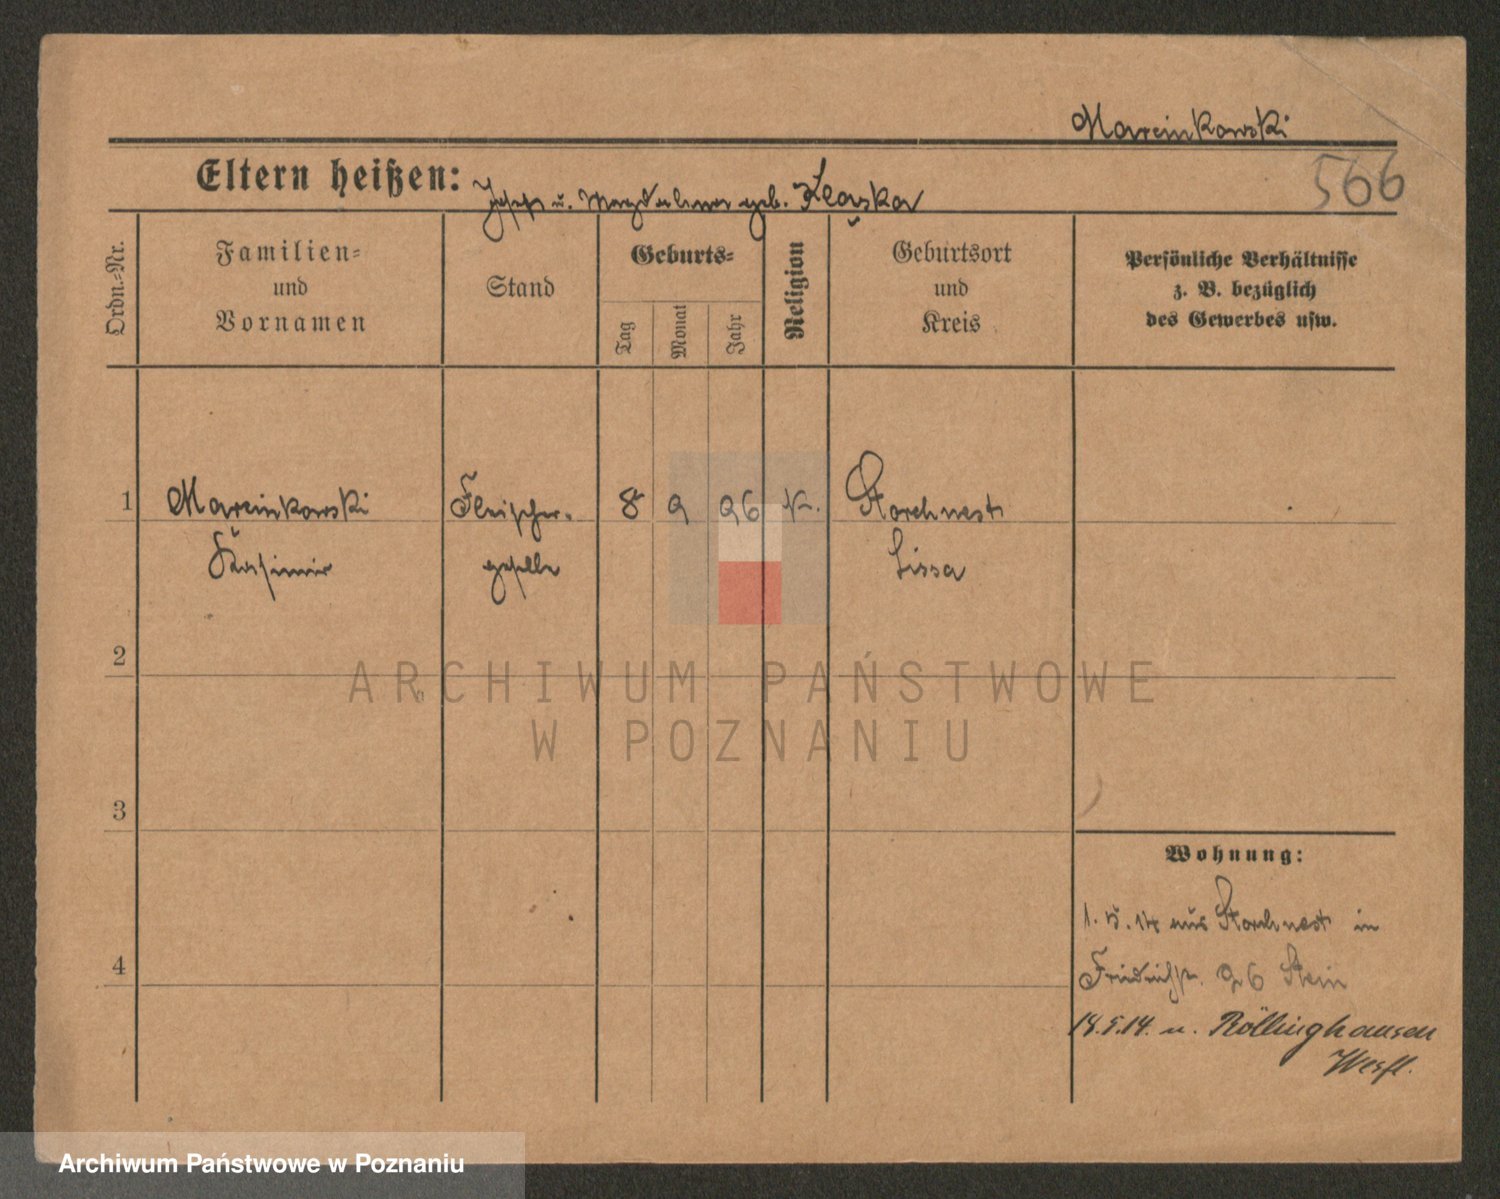 Marcinkowski
566
Eltern heißen: Joseph u. Magdalena geb.
Ordn.-Nr.
Familien-
und
Vornamen
Stand
Geburts-
Tag
Monat
Jahr
Religion
Geburtsort
und
Kreis
Persönliche Verhältnisse
z. B. bezüglich
des Gewerbes usw.
1
Marcinkowski
Kasimir
Fleischer-
geselle
8
9
96
K.
Storchnest
Lissa
2
3
4
Wohnung:
1. 5. 14 aus Storchnest in
Friedrichstr. 26 Stein
18.5.14. n. Röllinghausen
Westf.
ARCHIWUM PAŃSTWOWE
W POZNANIU
Archiwum Państwowe w Poznaniu